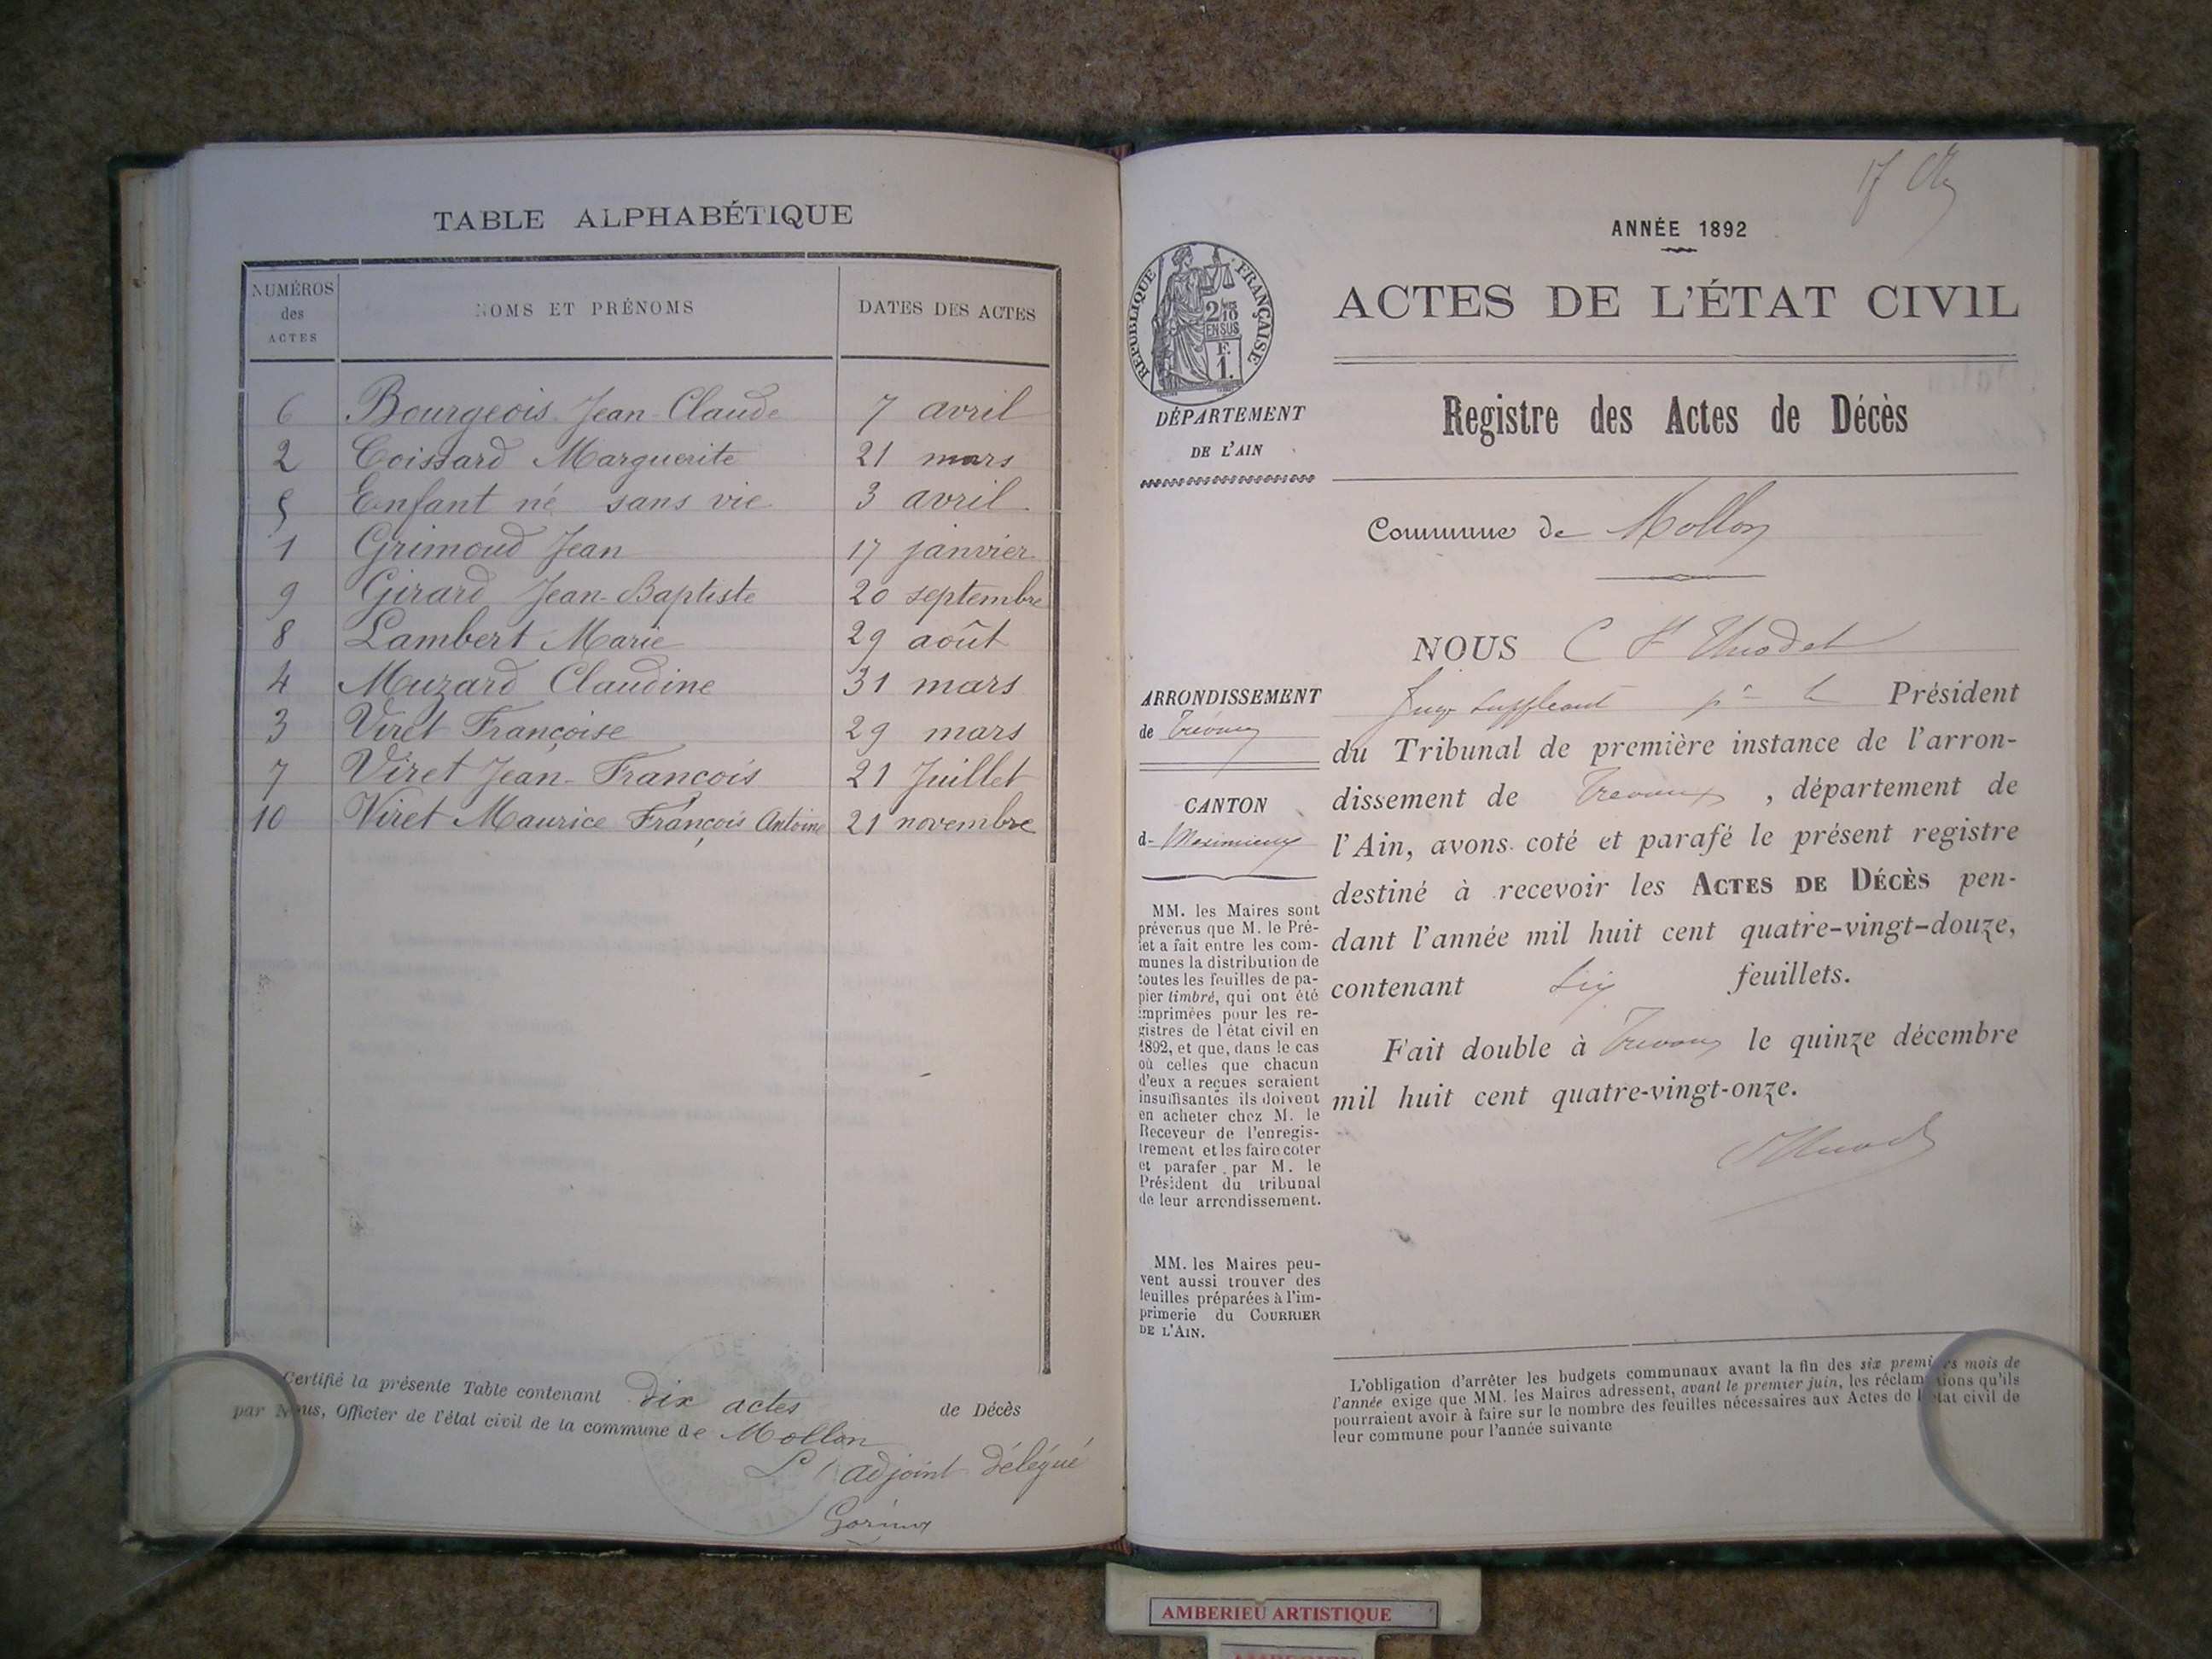 TABLE ALPHABÉTIQUE
NUMÉROS des ACTES
NOMS ET PRÉNOMS
DATES DES ACTES
6 Bourgeois Jean-Claude 7 avril
2 Coissard Marguerite 21 mars
5 Enfant né sans vie 3 avril
1 Grimoud Jean 17 janvier
9 Girard Jean-Baptiste 20 septembre
8 Lambert Marie 29 août
4 Muzard Claudine 31 mars
3 Viret Françoise 29 mars
7 Viret Jean-François 21 Juillet
10 Viret Maurice François Antoine 21 novembre
Certifié la présente Table contenant dix actes de Décès
par Nous, Officier de l'état civil de la commune de Mollon
L'adjoint délégué
ANNÉE 1892
RÉPUBLIQUE FRANÇAISE
2/10
EN SUS
F.
1.
ACTES DE L'ÉTAT CIVIL
DÉPARTEMENT
DE L'AIN
Registre des Actes de Décès
Commune de Mollon
ARRONDISSEMENT
de Trévoux
CANTON
d- Meximieux
MM. les Maires sont
prévenus que M. le Pré-
fet a fait entre les com-
munes la distribution de
toutes les feuilles de pa-
pier timbré, qui ont été
imprimées pour les re-
gistres de l'état civil en
1892, et que, dans le cas
où celles que chacun
d'eux a reçues seraient
insuffisantes ils doivent
en acheter chez M. le
Receveur de l'enregis-
trement et les faire coter
et parafer par M. le
Président du tribunal
de leur arrondissement.
MM. les Maires peu-
vent aussi trouver des
feuilles préparées à l'im-
primerie du COURRIER
DE L'AIN.
NOUS C
Juge suppléant pr le Président
du Tribunal de première instance de l'arron-
dissement de Trévoux, département de
l'Ain, avons coté et parafé le présent registre
destiné à recevoir les ACTES DE DÉCÈS pen-
dant l'année mil huit cent quatre-vingt-douze,
contenant Six feuillets.
Fait double à Trévoux le quinze décembre
mil huit cent quatre-vingt-onze.
L'obligation d'arrêter les budgets communaux avant la fin des six premiers mois de
l'année exige que MM. les Maires adressent, avant le premier juin, les réclamations qu'ils
pourraient avoir à faire sur le nombre des feuilles nécessaires aux Actes de l'état civil de
leur commune pour l'année suivante
AMBERIEU ARTISTIQUE